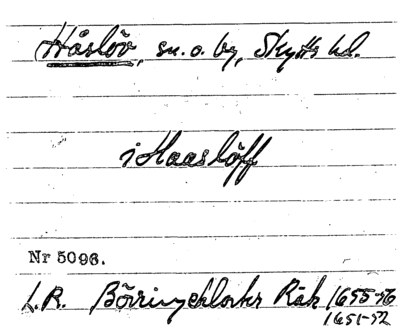 Håslöv, sn. o. by, Skytts hd.
i Haaslöff
Nr 5096.
L.R. Börringekloster Räk 1655-56
1651-52